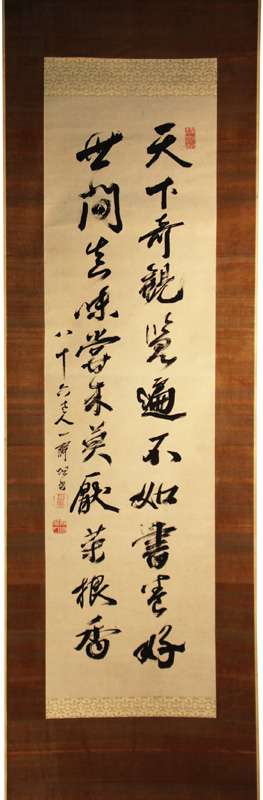 天下奇観覧遍不如書巻好
世間真味嘗来莫厭菜根香
八十六老人一斎坦書